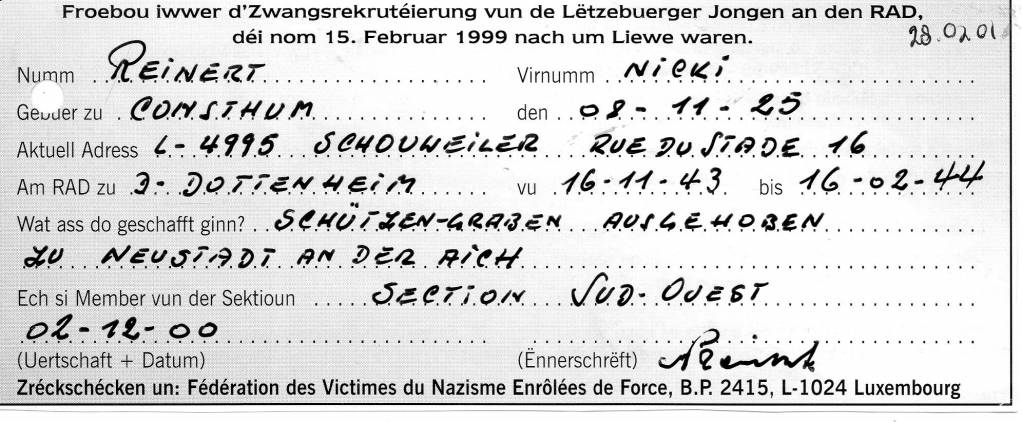 Froebou iwwer d'Zwangsrekrutéierung vun de Lëtzebuerger Jongen an den RAD,
déi nom 15. Februar 1999 nach um Liewe waren.
28.02.01
Numm REINERT Virnumm NICKI
Gebuer zu CONSTHUM den 08-11-25
Aktuell Adress L-4995 SCHOUWEILER RUE DU STADE 16
Am RAD zu J-DOTTENHEIM vu 16-11-43 bis 16-02-44
Wat ass do geschafft ginn? SCHÜTZEN-GRABEN AUSGEHOBEN
ZU NEUSTADT AN DER AICH
Ech si Member vun der Sektioun SECTION SUD-OUEST
02-12-00
(Uertschaft + Datum) (Ënnerschrëft) Reinert
Zréckschécken un: Fédération des Victimes du Nazisme Enrôlées de Force, B.P. 2415, L-1024 Luxembourg